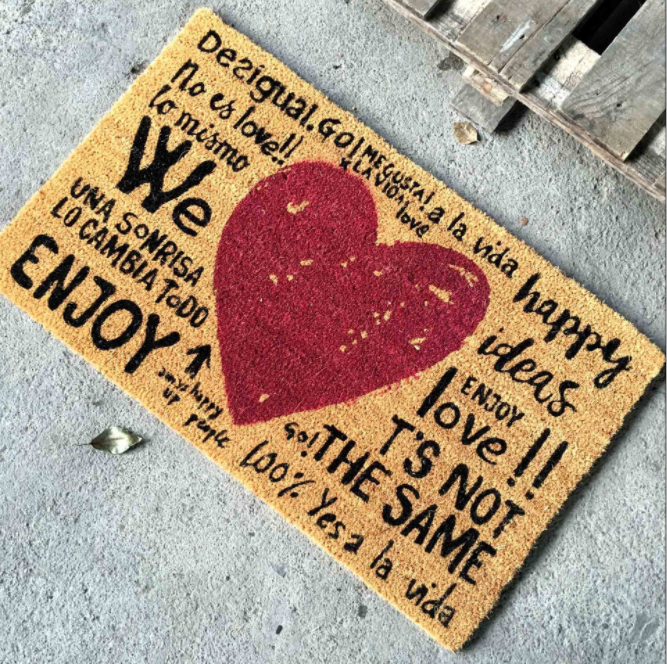 Desigual.
No es love!!
lo mismo
GO! ME GUSTA!
A LA VIDA!
love
a la vida
We
UNA SONRISA
LO CAMBIA TODO
ENJOY
happy
ideas
ENJOY
love!!
happy
up people
GO!
T'S NOT
THE SAME
100% Yes a la vida